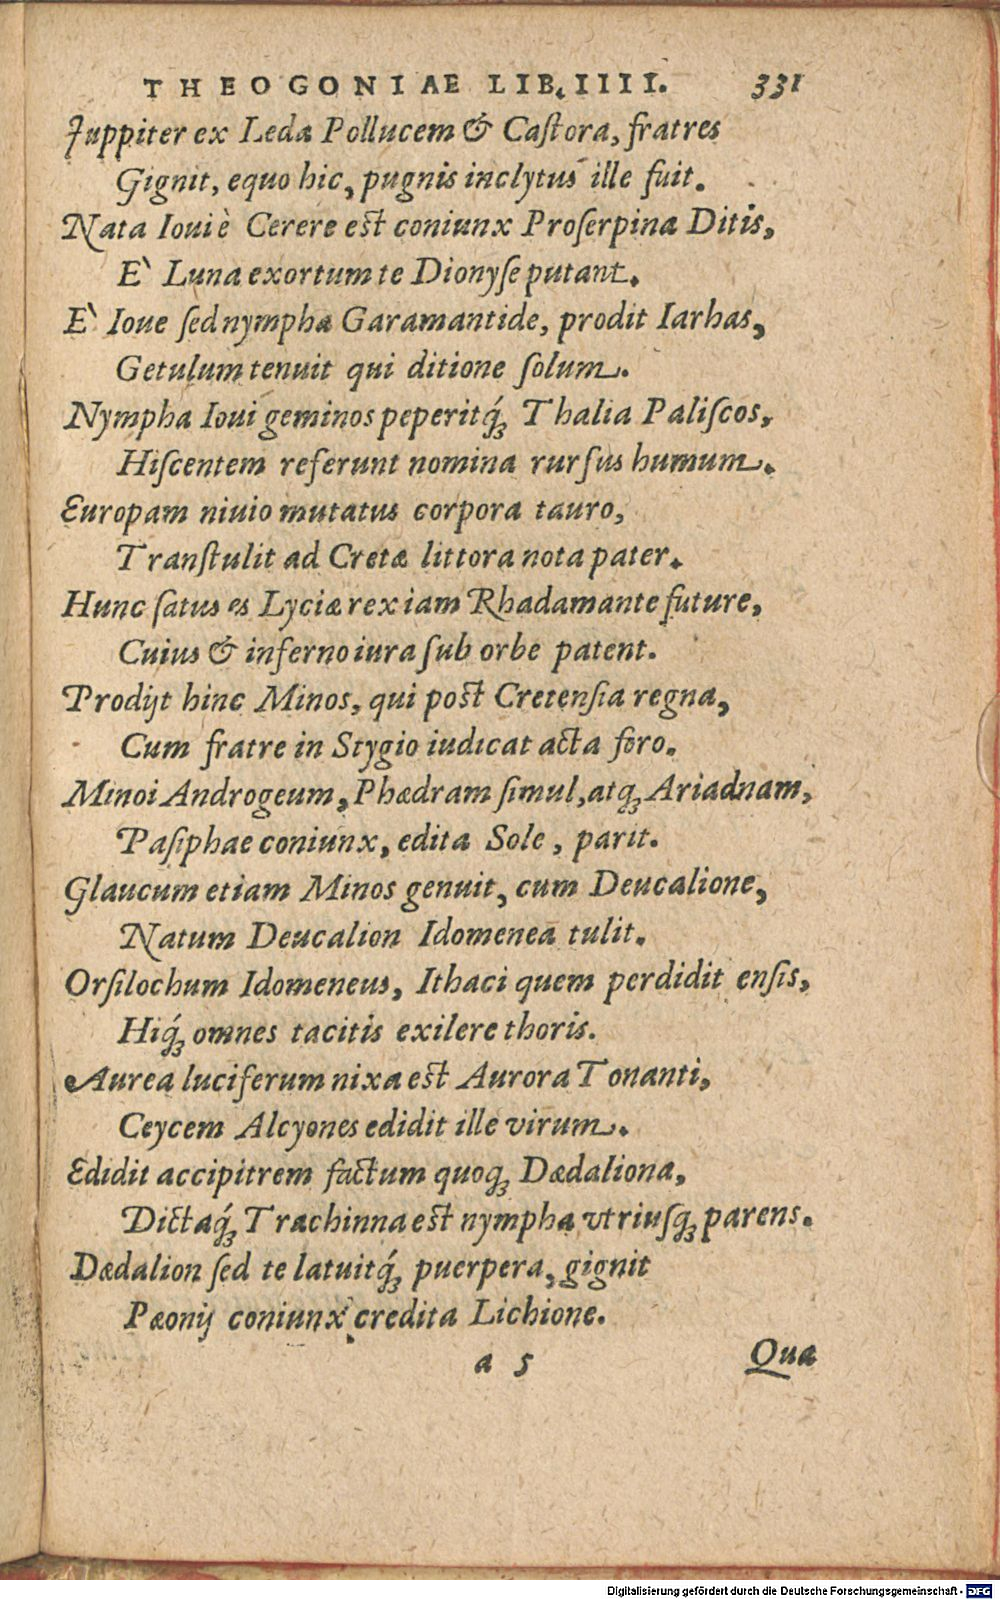 THEOGONIAE LIB. IIII. 331
Juppiter ex Leda Pollucem & Caſtora, fratres
Gignit, equo hic, pugnis inclytus ille fuit.
Nata Ioui è Cerere est coniunx Proſerpina Ditis,
E` Luna exortum te Dionyſe putant.
E` Ioue ſed nympha Garamantide, prodit Iarbas,
Getulum tenuit qui ditione ſolum.
Nympha Ioui geminos peperitq́ꝫ Thalia Paliſcos,
Hiſcentem referunt nomina rurſus humum.
Europam niuio mutatus corpora tauro,
Tranſtulit ad Cretæ littora nota pater.
Hunc ſatus es Lyciæ rex iam Rhadamante future,
Cuius & inferno iura ſub orbe patent.
Prodijt hinc Minos, qui post Cretenſia regna,
Cum fratre in Stygio iudicat acta foro.
Minoi Androgeum, Phædram ſimul, atqꝫ Ariadnam,
Paſiphae coniunx, edita Sole, parit.
Glaucum etiam Minos genuit, cum Deucalione,
Natum Deucalion Idomenea tulit.
Orſilochum Idomeneus, Ithaci quem perdidit enſis,
Hiq́ꝫ omnes tacitis exilere thoris.
Aurea luciferum nixa est Aurora Tonanti,
Ceycem Alcyones edidit ille virum.
Edidit accipitrem factum quoqꝫ Dædaliona,
Dictaq́ꝫ Trachinna est nympha vtriuſqꝫ parens.
Dædalion ſed te latuitq́ꝫ puerpera, gignit
Pæonij coniunx credita Lichione.
a 5 Qua
Digitalisierung gefördert durch die Deutsche Forschungsgemeinschaft - DFG